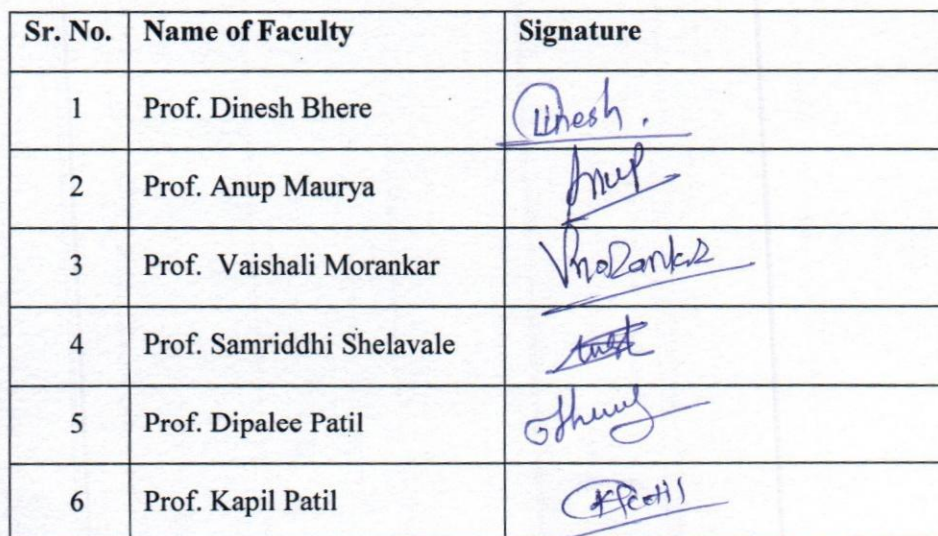 Sr. No. Name of Faculty Signature
1 Prof. Dinesh Bhere Dinesh .
2 Prof. Anup Maurya Anup
3 Prof. Vaishali Morankar VMorankar
4 Prof. Samriddhi Shelavale
5 Prof. Dipalee Patil
6 Prof. Kapil Patil KPatil